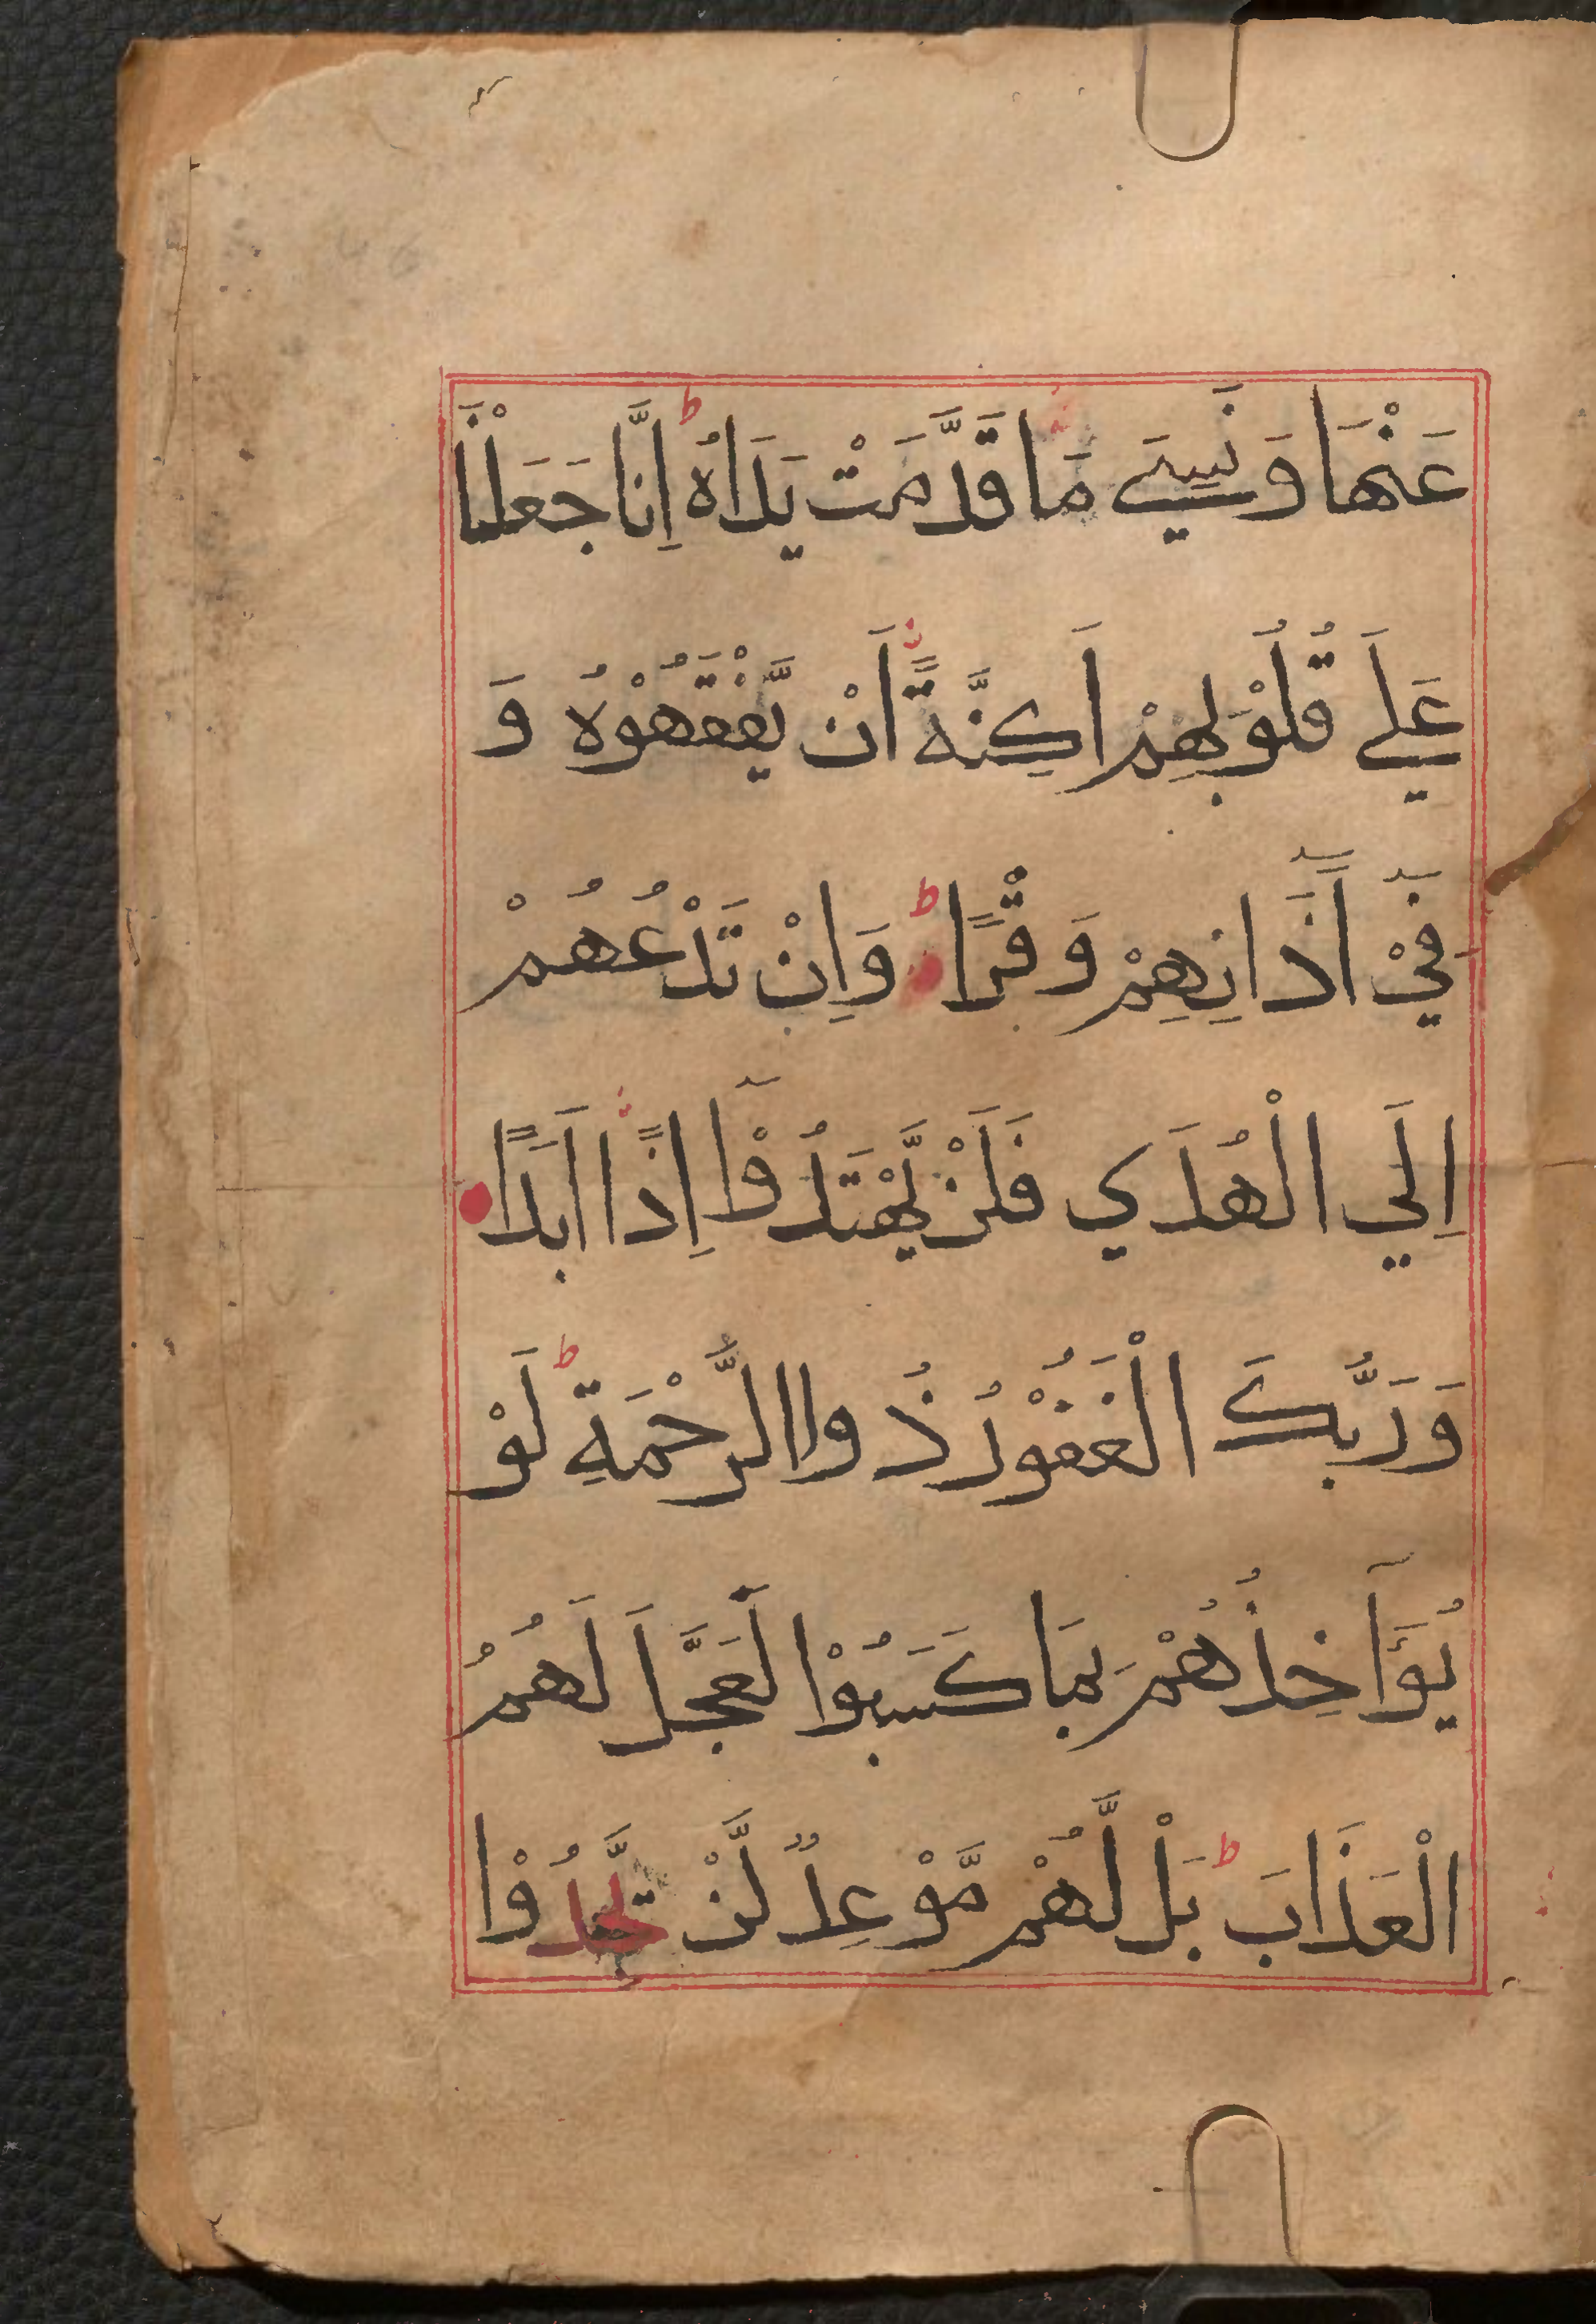 عَنْهَا وَنَسِيَ مَا قَدَّمَتْ يَدَاهُ ؕ اِنَّا جَعَلْنَا
عَلَي قُلُوْبِهِمْ اَكِنَّةً اَنْ يَّفْقَهُوْهُ وَ
فِيْٓ اٰذَانِهِمْ وَقْرًا ؕ وَاِنْ تَدْعُهُمْ
اِلَي الْهُدَي فَلَنْ يَّهْتَدُوْٓا اِذًا اَبَدًا
وَرَبُّكَ الْغَفُوْرُ ذُواالرَّحْمَةِ ؕ لَوْ
يُؤَآخِذُهُمْ بِمَا كَسَبُوْا لَعَجَّلَ لَهُمُ
الْعَذَابَ ؕ بَلْ لَّهُمْ مَّوْعِدٌ لَّنْ يَّجِدُوْا